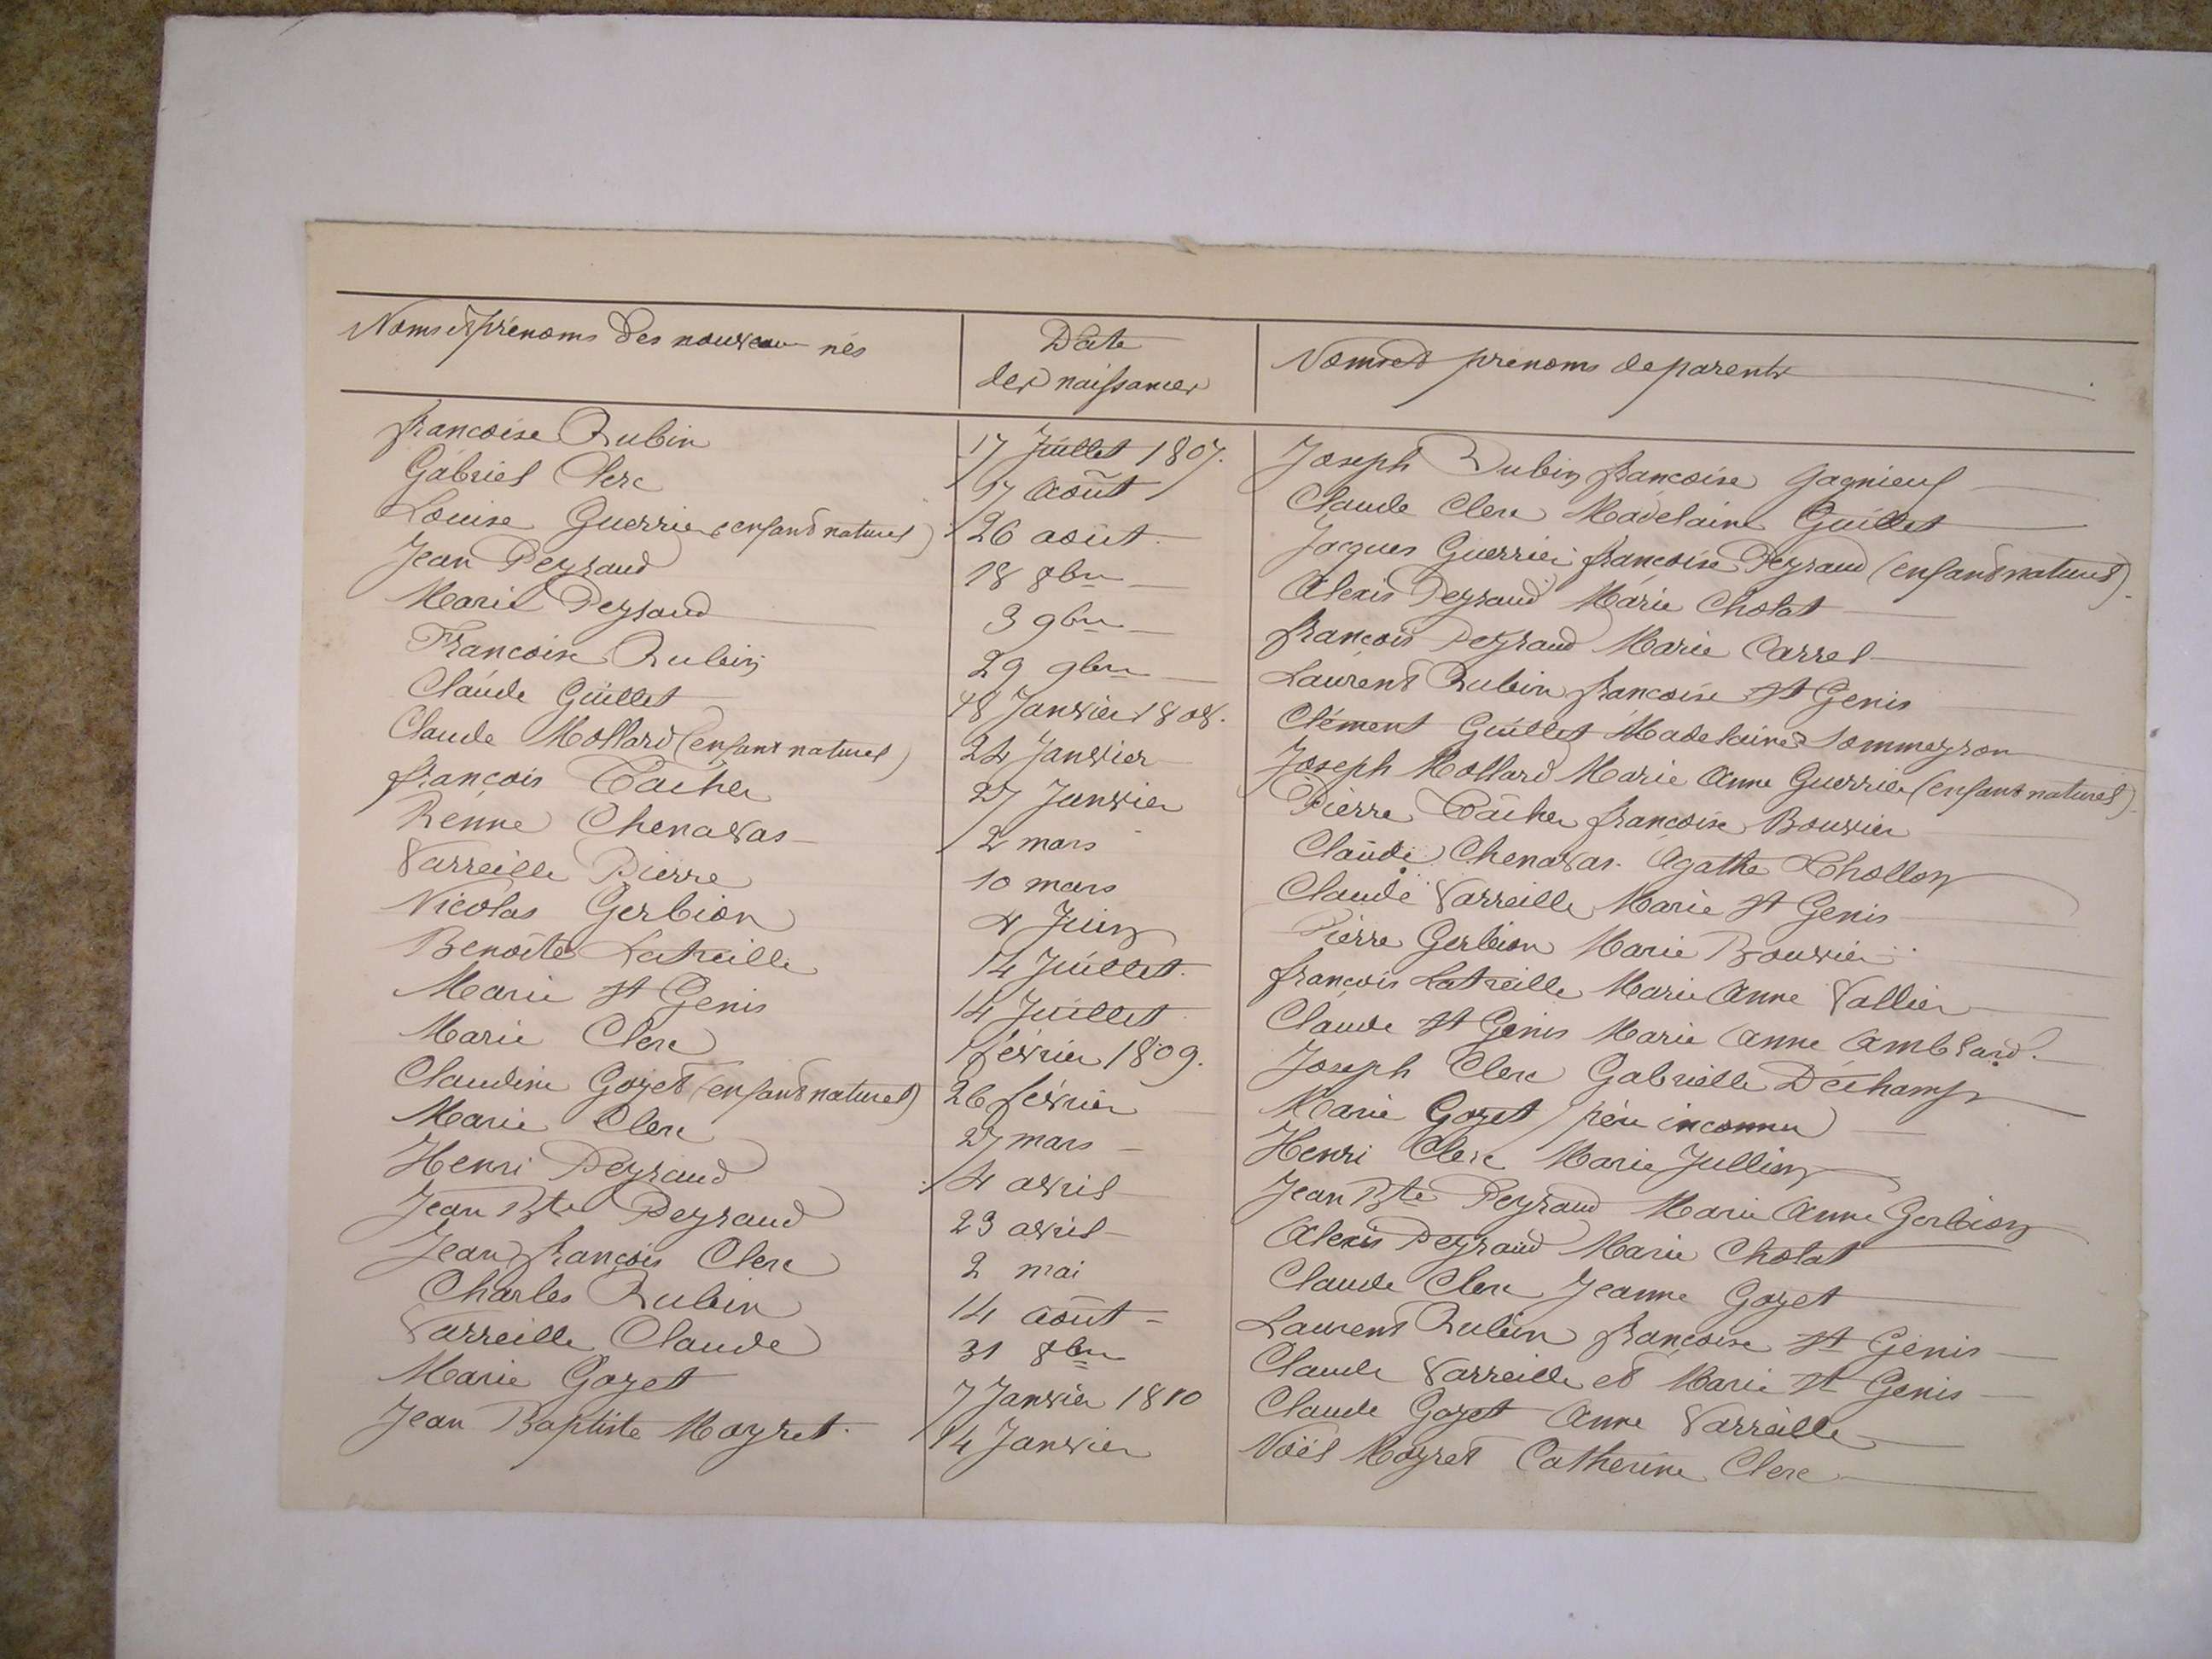 Noms et prénoms des nouveau nés
Date
des naissances
Noms et prénoms de parents
françoise Rubin 17 Juillet 1807. Joseph Rubin françoise Gagnieux
Gabriel Clerc 17 Août Claude Clerc Madelaine Guillet
Louise Guerrier (enfant naturel) 26 août Jacques Guerrier françoise Peyraud (enfant naturel)
Jean Peyraud 18 8bre Alexis Peyraud Marie Cholat
Marie Peyraud 3 9bre françois Peyraud Marie Carrel
Françoise Rubin 29 9bre Laurent Rubin françoise St Genis
Claude Guillet 18 Janvier 1808. Clément Guillet Madelaine Sommeyron
Claude Mollard (enfant naturel) 22 Janvier Joseph Mollard Marie Anne Guerrier (enfant naturel)
françois 27 Janvier Pierre françoise Bouvier
Renne Chenavas 2 mars Claude Chenavas. Agathe Chollon
Varreille Pierre 10 mars Claude Varreille Marie St Genis
Nicolas Gerbion 4 Juin Pierre Gerbion Marie Bouvier
Benoîte Latreille 14 Juillet. françois Latreille Marie Anne Vallier
Marie St Genis 14 Juillet Claude St Genis Marie Anne Amblard.
Marie Clerc 1 février 1809. Joseph Clerc Gabrielle Déchamp
Claudine Goyet (enfant naturel) 26 février Marie Goyet père inconnu
Marie Clerc 27 mars Henri Clerc Marie Jullien
Henri Peyraud 4 avril Jean Bte Peyraud Marie Anne Gerbion
Jean Bte Peyraud 23 avril Alexis Peyraud Marie Cholat
Jean françois Clerc 2 mai Claude Clerc Jeanne Goyet
Charles Rubin 14 août Laurent Rubin françoise St Genis
Varreille Claude 31 8bre Claude Varreille et Marie St Genis
Marie Goyet 7 Janvier 1810 Claude Goyet Anne Varreille
Jean Baptiste Moyret. 14 Janvier Noël Moyret Catherine Clerc